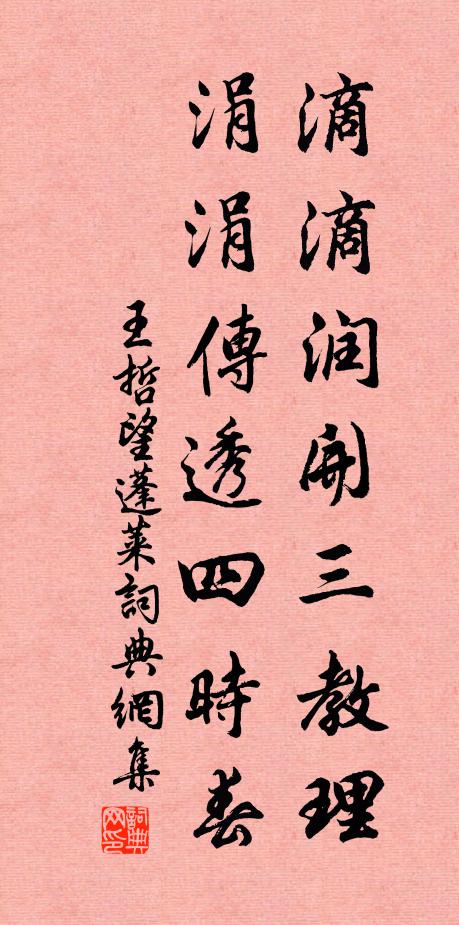 滴滴润开三教理
涓涓傳透四時春
王哲望蓬莱詞典網集
詞典网印